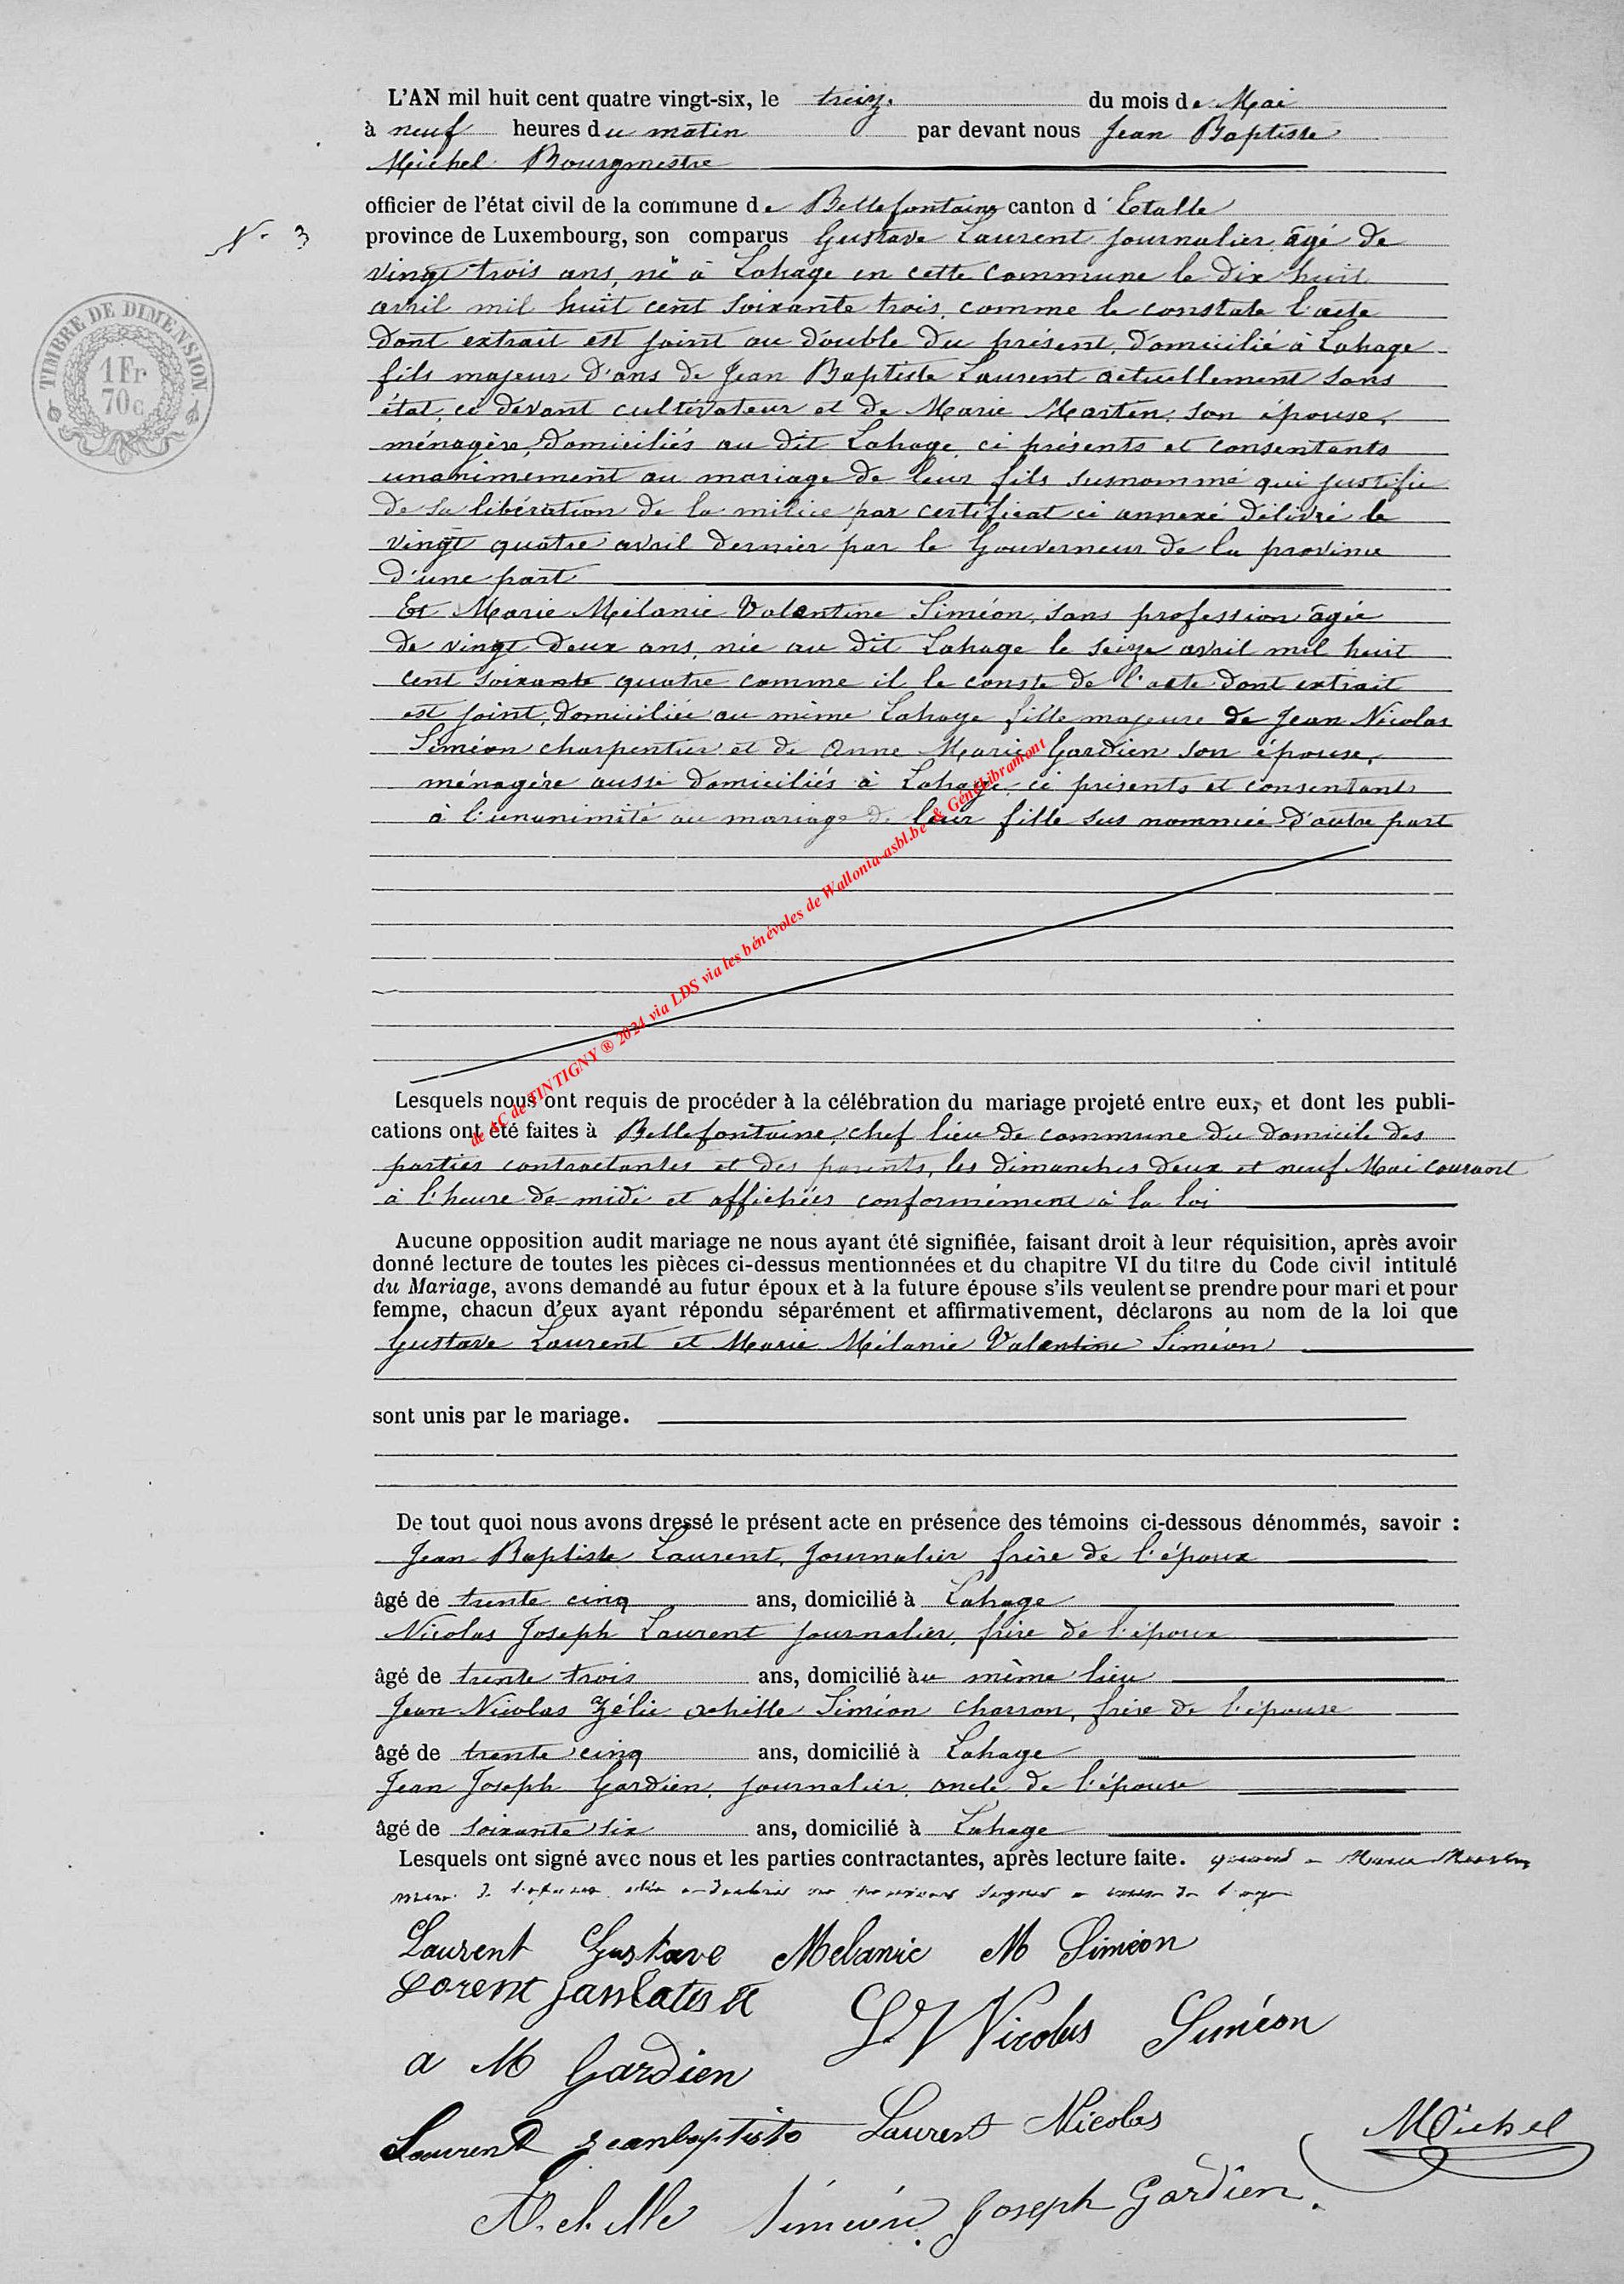 L'AN mil huit cent quatre vingt-six, le treize du mois de Mai
à neuf heures du matin par devant nous Jean Baptiste
Michel Bourgmestre
officier de l'état civil de la commune de Bellefontaine canton d'Etalle
N° 3 province de Luxembourg, son comparus Gustave Laurent journalier, âgé de
TIMBRE DE DIMENSION
1 Fr
70 c
vingt trois ans, né à Lahage en cette commune le dix huit
avril mil huit cent soixante trois, comme le constate l'acte
dont extrait est joint au double du présent, domicilié à Lahage
fils majeur d'ans de Jean Baptiste Laurent actuellement sans
état, ci devant cultivateur et de Marie Marten, son épouse,
ménagère, domiciliés au dit Lahage, ci présents et consentants
unanimement au mariage de leur fils susnommé qui justifie
de sa libération de la milice par certificat ci annexé délivré le
vingt quatre avril dernier par le Gouverneur de la province
d'une part
Et Marie Mélanie Valentine Siméon, sans profession âgée
de vingt deux ans, née au dit Lahage le seize avril mil huit
cent soixante quatre comme il le conste de l'acte dont extrait
est joint, domiciliée au même Lahage fille majeure de Jean Nicolas
Siméon charpentier et de Anne Marie Gardien son épouse,
ménagère aussi domiciliés à Lahage, ci présents et consentants
à l'unanimité au mariage de leur fille sus nommée d'autre part
de AC de TINTIGNY ® 2024 via LDS via les bénévoles de Wallonia-asbl.be & GénéLibramont
Lesquels nous ont requis de procéder à la célébration du mariage projeté entre eux, et dont les publi-
cations ont été faites à Bellefontaine, chef lieu de commune du domicile des
parties contractantes et des parents, les dimanches deux et neuf Mai courant
à l'heure de midi et affichées conformément à la loi
Aucune opposition audit mariage ne nous ayant été signifiée, faisant droit à leur réquisition, après avoir
donné lecture de toutes les pièces ci-dessus mentionnées et du chapitre VI du titre du Code civil intitulé
du Mariage, avons demandé au futur époux et à la future épouse s'ils veulent se prendre pour mari et pour
femme, chacun d'eux ayant répondu séparément et affirmativement, déclarons au nom de la loi que
Gustave Laurent et Marie Mélanie Valentine Siméon
sont unis par le mariage.
De tout quoi nous avons dressé le présent acte en présence des témoins ci-dessous dénommés, savoir :
Jean Baptiste Laurent, journalier frère de l'époux
âgé de trente cinq ans, domicilié à Lahage
Nicolas Joseph Laurent journalier, frère de l'époux
âgé de trente trois ans, domicilié au même lieu
Jean Nicolas Zélie Achille Siméon charron, frère de l'épouse
âgé de trente cinq ans, domicilié à Lahage
Jean Joseph Gardien, journalier, oncle de l'épouse
âgé de soixante six ans, domicilié à Lahage
Lesquels ont signé avec nous et les parties contractantes, après lecture faite. Marie Marten
mère de l'époux
Laurent Gustave Melanie M Siméon
Lorent
J Nicolas Siméon
a M Gardien
Laurent Jeanbaptiste Laurent Nicolas
Michel
Achille Siméon Joseph Gardien.